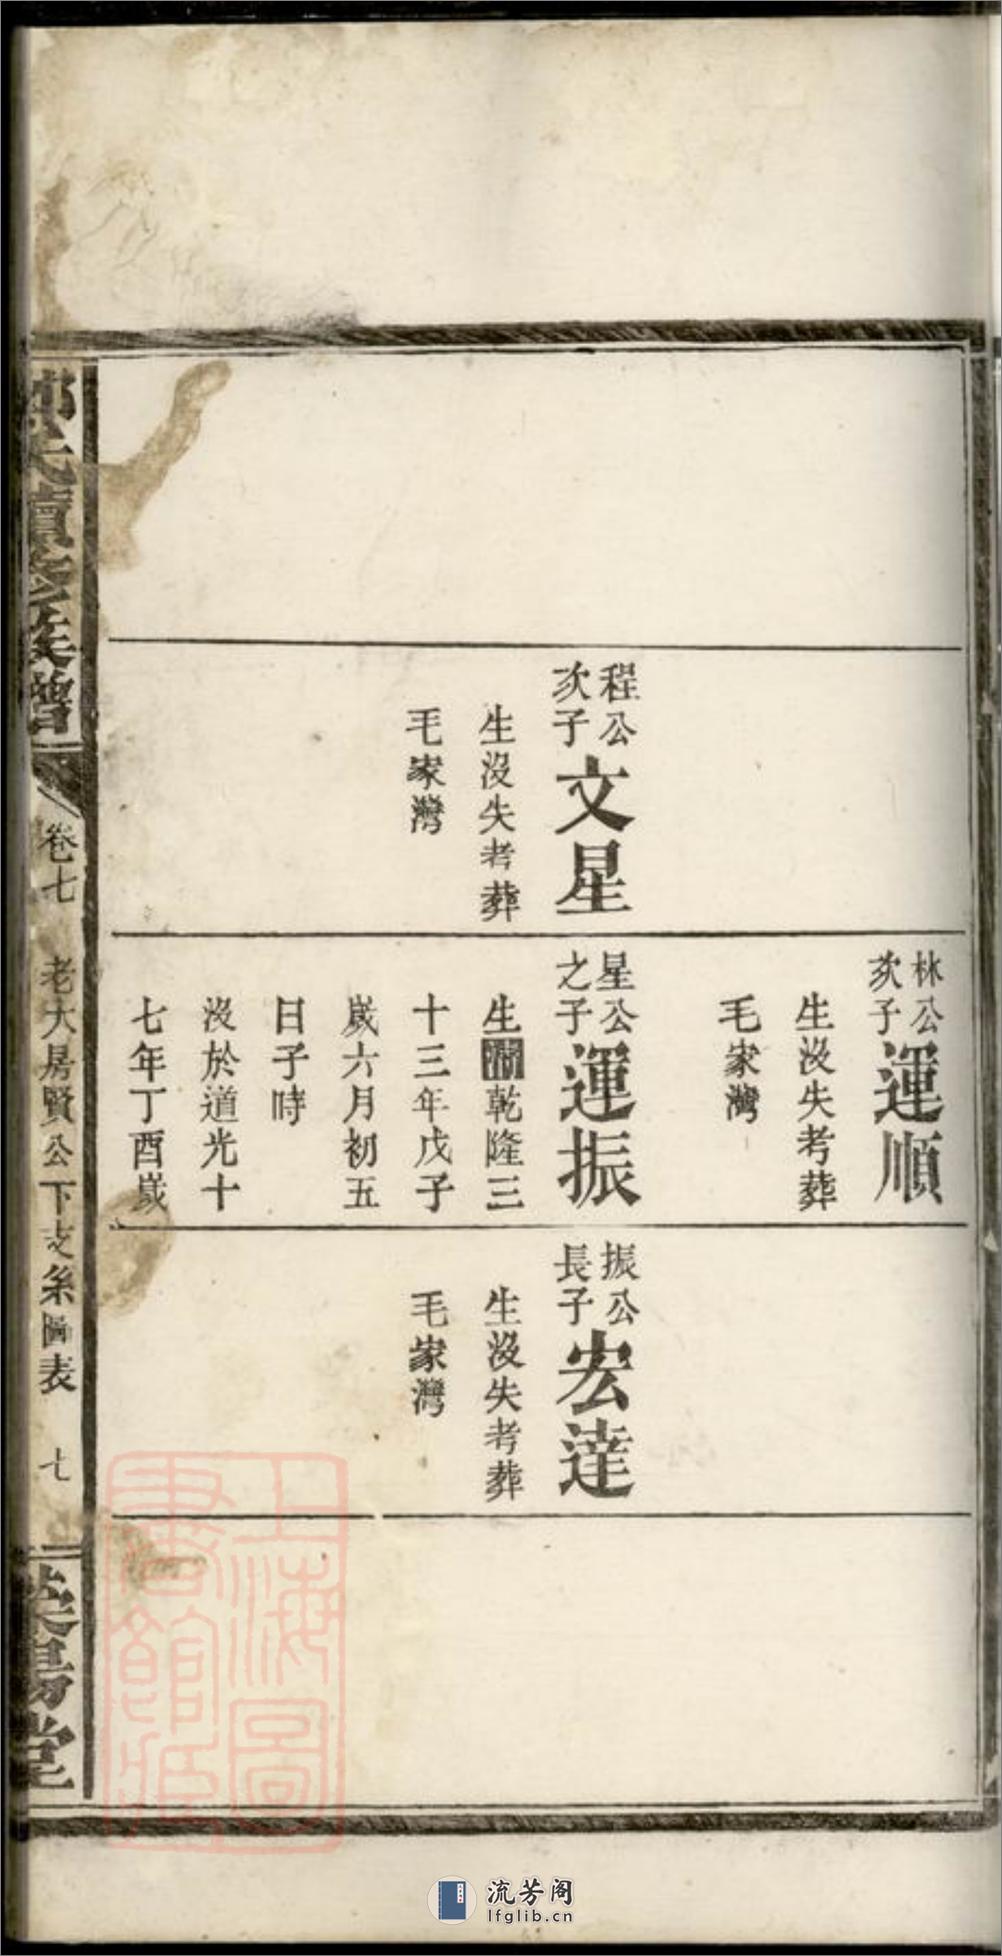 程公次子文星
生沒失考葬
毛家灣
林公次子運順
生沒失考葬
毛家灣
星公之子運振
生清乾隆三
十三年戊子
歲六月初五
日子時
沒於道光十
七年丁酉歲
振公長子宏達
生沒失考葬
毛家灣
氏續修族譜
卷七
老大房賢公下支系圖表
七
陽堂
上海圖書館藏
流芳阁
lfglib.cn